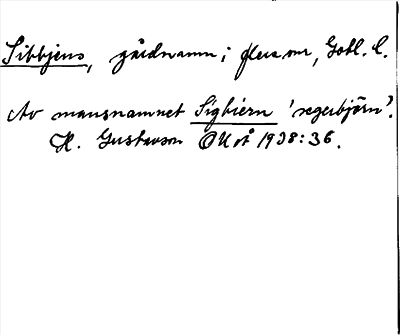 Sibbjens, gårdnamn i flera snr, Gotl. l.
Av mansnamnet Sigbiern 'segerbjörn'.
H. Gustavson OUÅ 1938:36.